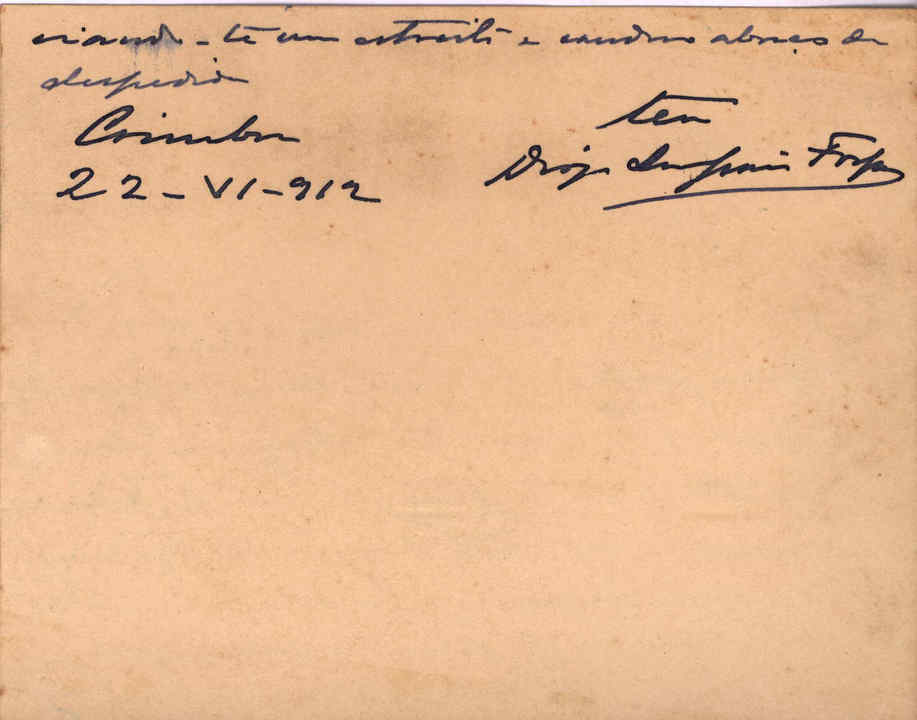 viando-te um estreito e saudoso abraço de
despedida
Coimbra
teu
22-VI-912